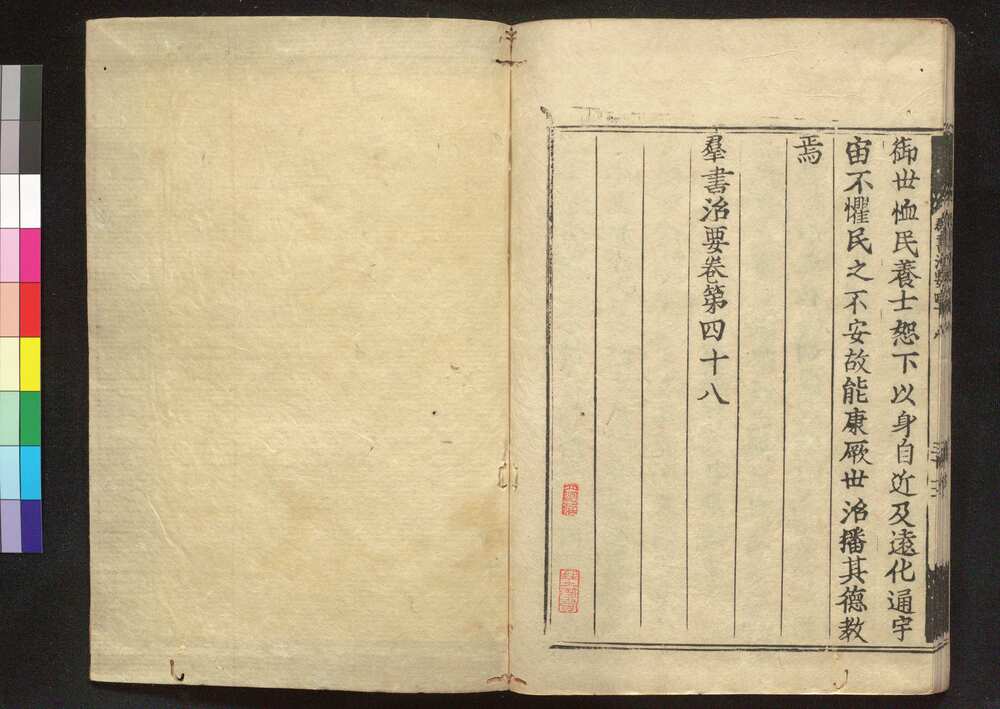 御世恤民養士恕下以身自近及遠化通宇
宙不懼民之不安故能康厥世治播其德教
焉
羣書治要卷第四十八